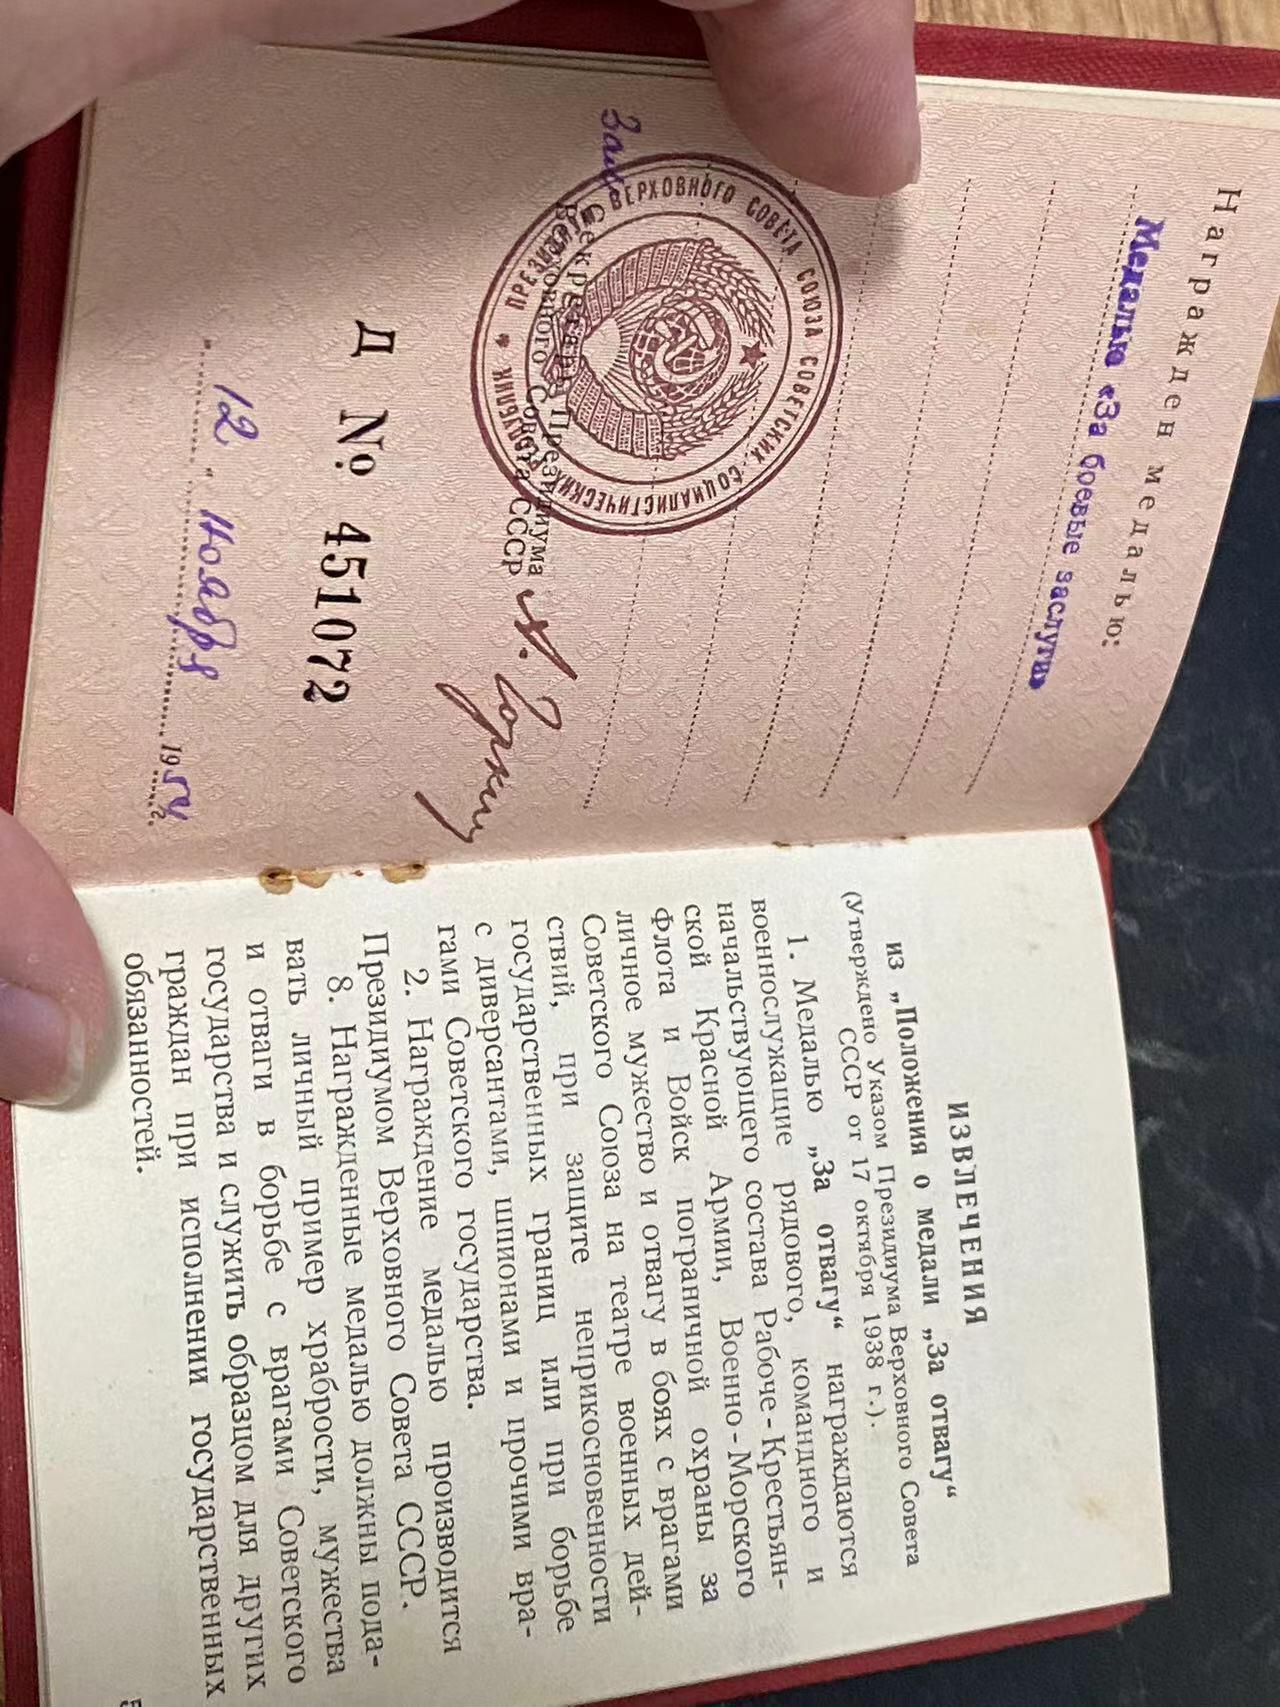 Награжден медалью:
Медалью «За боевые заслуги»
ПРЕЗИДИУМ ВЕРХОВНОГО СОВЕТА СОЮЗА СОВЕТСКИХ СОЦИАЛИСТИЧЕСКИХ РЕСПУБЛИК
Зам.
Секретарь Президиума
Верховного Совета СССР
А. Горкин
Д № 451072
"12" ноября 1954 г.
ИЗВЛЕЧЕНИЯ
из „Положения о медали „За отвагу“
(Утверждено Указом Президиума Верховного Совета
СССР от 17 октября 1938 г.).
1. Медалью „За отвагу“ награждаются
военнослужащие рядового, командного и
начальствующего состава Рабоче-Крестьян-
ской Красной Армии, Военно-Морского
Флота и Войск пограничной охраны за
личное мужество и отвагу в боях с врагами
Советского Союза на театре военных дей-
ствий, при защите неприкосновенности
государственных границ или при борьбе
с диверсантами, шпионами и прочими вра-
гами Советского государства.
2. Награждение медалью производится
Президиумом Верховного Совета СССР.
8. Награжденные медалью должны пода-
вать личный пример храбрости, мужества
и отваги в борьбе с врагами Советского
государства и служить образцом для других
граждан при исполнении государственных
обязанностей.
5